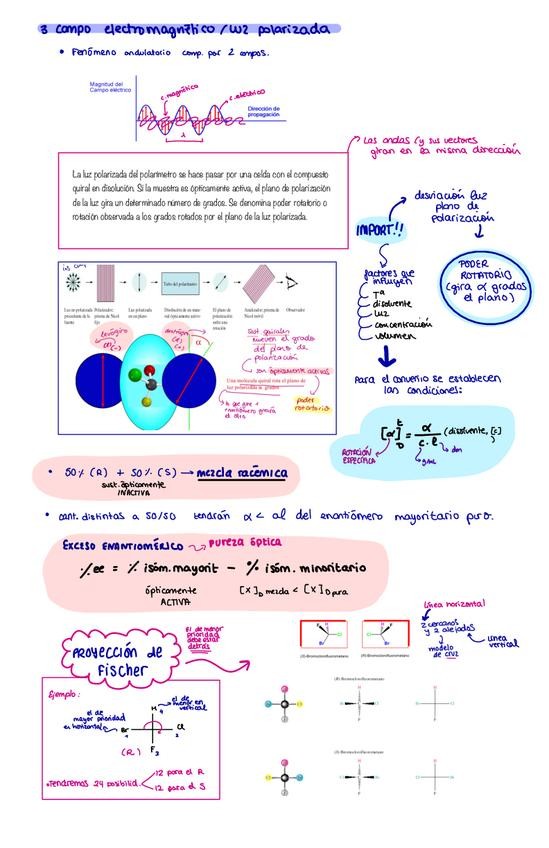 3 campo electromagnético / luz polarizada
• Fenómeno ondulatorio comp. por 2 campos.
Magnitud del
Campo eléctrico
c.magnético
c.eléctrico
Dirección de
propagación
λ
Las ondas (y sus vectores
giran en la misma dirección
La luz polarizada del polarímetro se hace pasar por una celda con el compuesto
quiral en disolución. Si la muestra es ópticamente activa, el plano de polarización
de la luz gira un determinado número de grados. Se denomina poder rotatorio o
rotación observada a los grados rotados por el plano de la luz polarizada.
desviación luz
plano de
polarización
IMPORT!!
PODER
ROTATORIO
(gira α grados
el plano)
factores que
influyen
Tª
disolvente
luz
concentración
volumen
Tubo del polarímetro
Luz no polarizada
procedente de la
fuente
Polarizador:
prisma de Nicol
fijo
Luz polarizada
en un plano
Disolución de un mate-
rial ópticamente activo
El plano de
polarización
sufre una
rotación
Analizador: prisma de
Nicol móvil
Observador
levógiro
α(-)
α
Sust. quirales
mueven el grado
del plano de
polarización
son ópticamente activas
Una molécula quiral rota el plano de
luz polarizada α grados
poder
rotatorio
Para el convenio se establecen
las condiciones:
[α] t D = α / c · l (disolvente, [c])
ROTACIÓN
ESPECÍFICA
g/mL
dm
• 50% (R) + 50% (S) → mezcla racémica
sust. ópticamente
INACTIVA
• cant. distintas a 50/50 tendrán α < al del enantiómero mayoritario puro.
EXCESO ENANTIOMÉRICO → PUREZA ÓPTICA
·/.ee = % isóm. mayorit - % isóm. minoritario
ópticamente
ACTIVA
[α]D mezcla < [α]D pura
PROYECCIÓN DE
FISCHER
El de menor
prioridad
debe estar
detrás
F
H
Cl
Br
H
F
Cl
Br
(S)-Bromoclorofluorometano
(R)-Bromoclorofluorometano
Línea horizontal
2 cercanos
y 2 alejados
modelo
de cruz
Línea
vertical
Ejemplo:
el de
mayor prioridad
en horizontal
el de
menor en
vertical
H 4
Br 1
Cl 2
F 3
(R)
• Tendremos 24 posibilid.
12 para el R
12 para el S
(R)-Bromoclorofluorometano
(S)-Bromoclorofluorometano